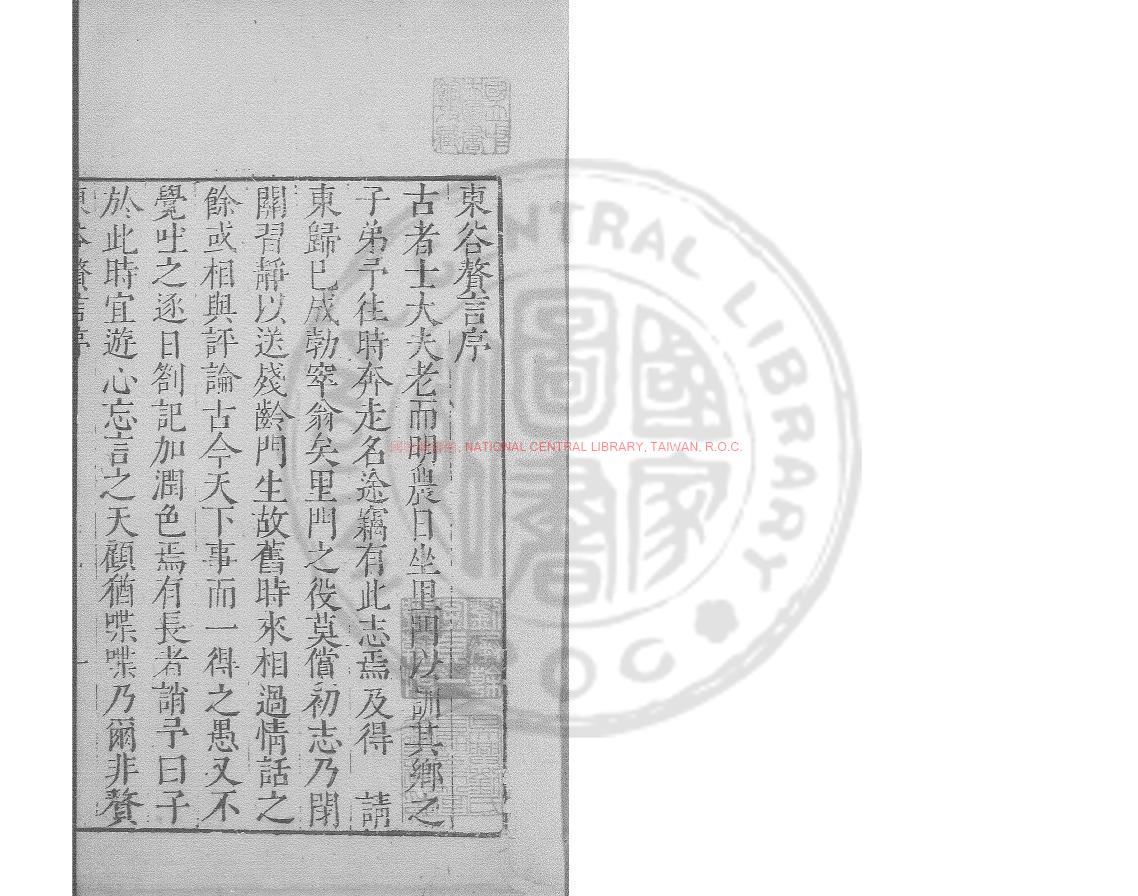 東谷贅言序
古者士大夫老而明農日坐里門以訓其鄉之
子弟予往時奔走名途竊有此志焉及得 請
東歸已成勃窣翁矣里門之役莫償初志乃閉
關習靜以送殘齡門生故舊時來相過情話之
餘或相與評論古今天下事而一得之愚又不
覺吐之逐日劄記加潤色焉有長者誚予曰子
於此時宜遊心忘言之天顧猶喋喋乃爾非贅
東谷贅言序
一
NATIONAL CENTRAL LIBRARY, TAIWAN, R.O.C.
國家圖書
CENTRAL LIBRARY
R.O.C.